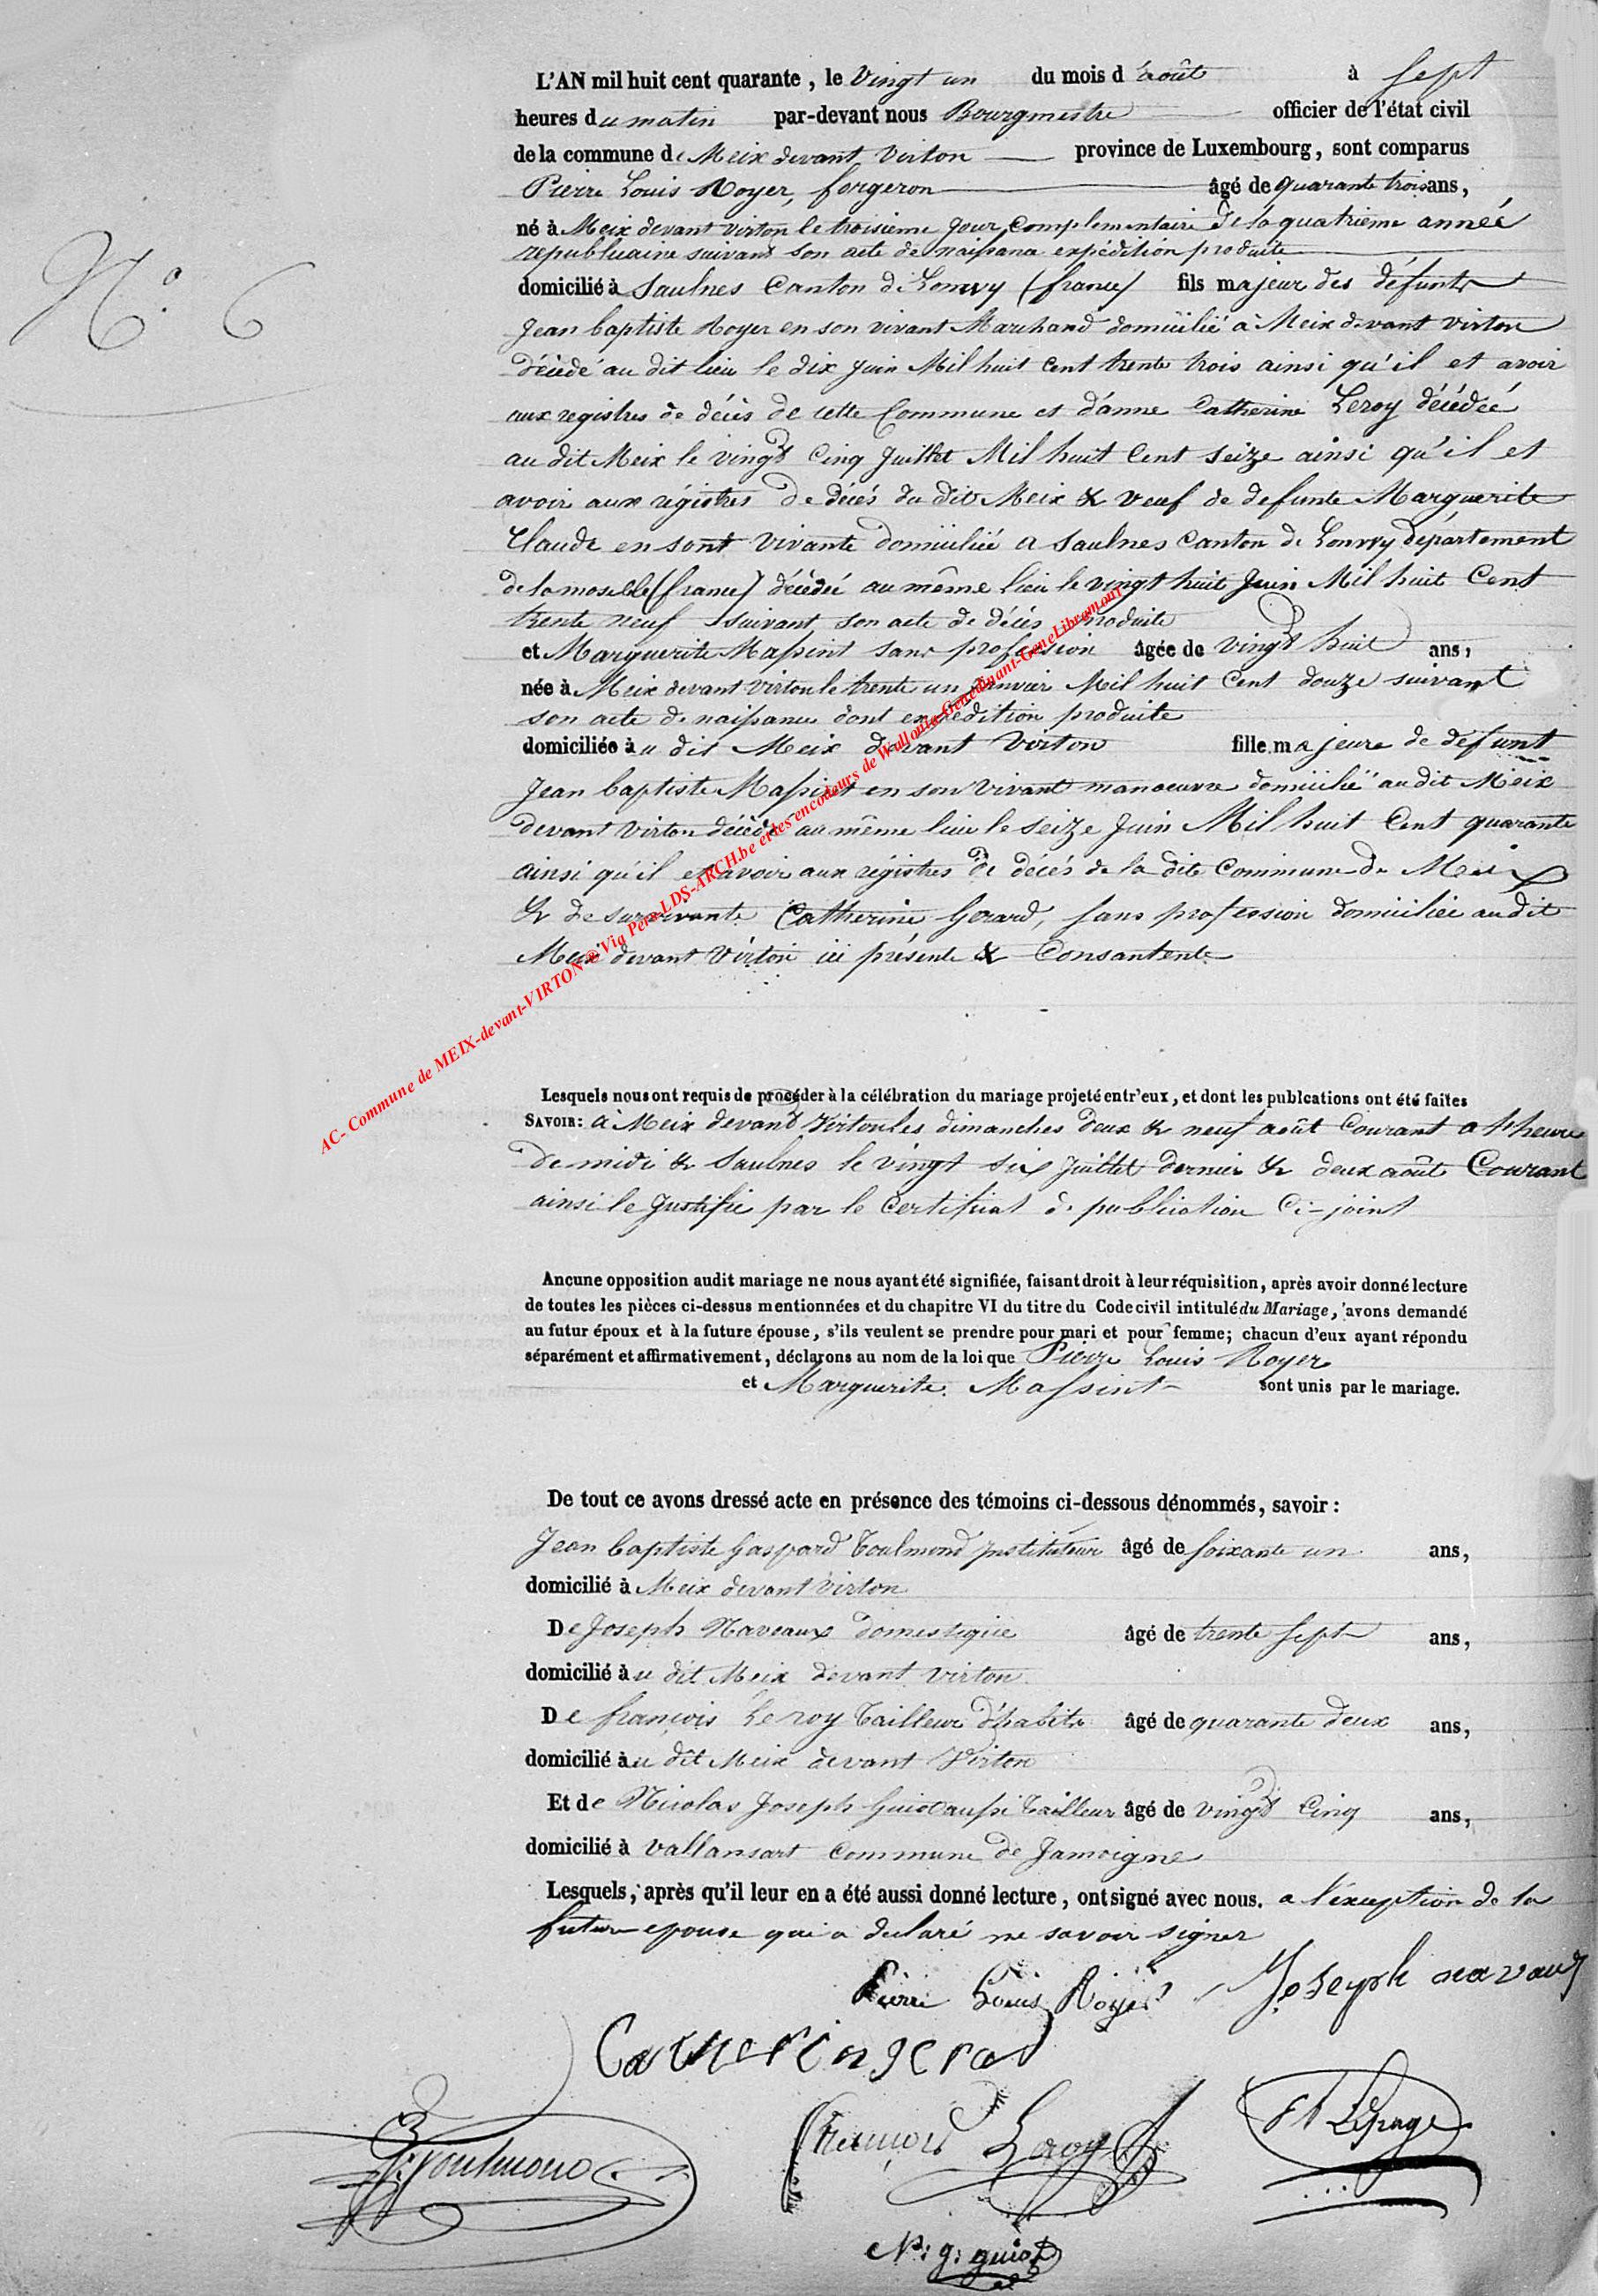 N.º 6
L'AN mil huit cent quarante, le Vingt un du mois d'août à Sept
heures du matin par-devant nous Bourgmestre officier de l'état civil
de la commune de Meix devant Virton province de Luxembourg, sont comparus
Pierre Louis Royer, forgeron âgé de quarante trois ans,
né à Meix devant virton le troisieme jour complementaire de la quatrieme année
republicaine suivant son acte de naissance expédition produite
domicilié à Saulnes Canton de Lonwy (france) fils majeur des défunts
Jean baptiste Royer en son vivant Marchand domicilié à Meix devant virton
décèdé au dit lieu le dix juin Mil huit cent trente trois ainsi qu'il et avoir
aux registres de décès de cette Commune et d'anne Catherine Leroy décédée
au dit Meix le vingt Cinq Juillet Mil huit Cent seize ainsi qu'il et
avoir aux régistres de décés du dit Meix & veuf de defunte Marguerite
Claude en sont vivante domiciliée a Saulnes Canton de Lonwy département
de la moselle (france) décédée au même lieu le vingt huit Juin Mil huit Cent
trente neuf suivant son acte de décés produite
et Marguerite Massint sans profession âgée de vingt huit ans,
née à Meix devant Virton le trente un Janvier Mil huit Cent douze suivant
son acte de naissance dont expédition produite
domiciliée au dit Meix devant Virton fille majeure de defunt
Jean baptiste Massint en son vivant manoeuvre domicilié au dit Meix
devant Virton décédé au même lieu le seize Juin Mil huit Cent quarante
ainsi qu'il et avoir aux régistres de décés de la dite Commune de Meix
& de survivante Catherine Gerard, sans profession domiciliée au dit
Meix devant Virton ici présente & Consantente
Lesquels nous ont requis de procéder à la célébration du mariage projeté entr'eux, et dont les publcations ont été faites
SAVOIR: à Meix devant Virton les dimanches deux & neuf août Courant a l'heure
de midi & Saulnes le vingt six Juillet dernier & deux août Courant
ainsi le Justifie par le Certificat de publication Ci-joint
Aucune opposition audit mariage ne nous ayant été signifiée, faisant droit à leur réquisition, après avoir donné lecture
de toutes les pièces ci-dessus mentionnées et du chapitre VI du titre du Code civil intitulé du Mariage, avons demandé
au futur époux et à la future épouse, s'ils veulent se prendre pour mari et pour femme; chacun d'eux ayant répondu
séparément et affirmativement, déclarons au nom de la loi que Pierre Louis Royer
et Marguerite Massint sont unis par le mariage.
De tout ce avons dressé acte en présence des témoins ci-dessous dénommés, savoir:
Jean baptiste Gaspard Toulmond Instituteur âgé de soixante un ans,
domicilié à Meix devant Virton
De Joseph Naveaux domestique âgé de trente sept ans,
domicilié au dit Meix devant Virton
De françois Leroy tailleur d'habits âgé de quarante deux ans,
domicilié au dit Meix devant Virton
Et de Nicolas Joseph Guiot aussi tailleur âgé de vingt Cinq ans,
domicilié à Vallansart Commune de Jamoigne
Lesquels, après qu'il leur en a été aussi donné lecture, ont signé avec nous. a l'éxception de la
future epouse qui a declaré ne savoir signer
Pierre Louis Royer Joseph navaux
Catherin gerard
Toulmond François Leroy Lepage
N: g: guiot
AC- Commune de MEIX-devant-VIRTON ® Via Pere-LDS-ARCH.be et les encodeurs de Wallonia-Genedinant-GeneLibramont